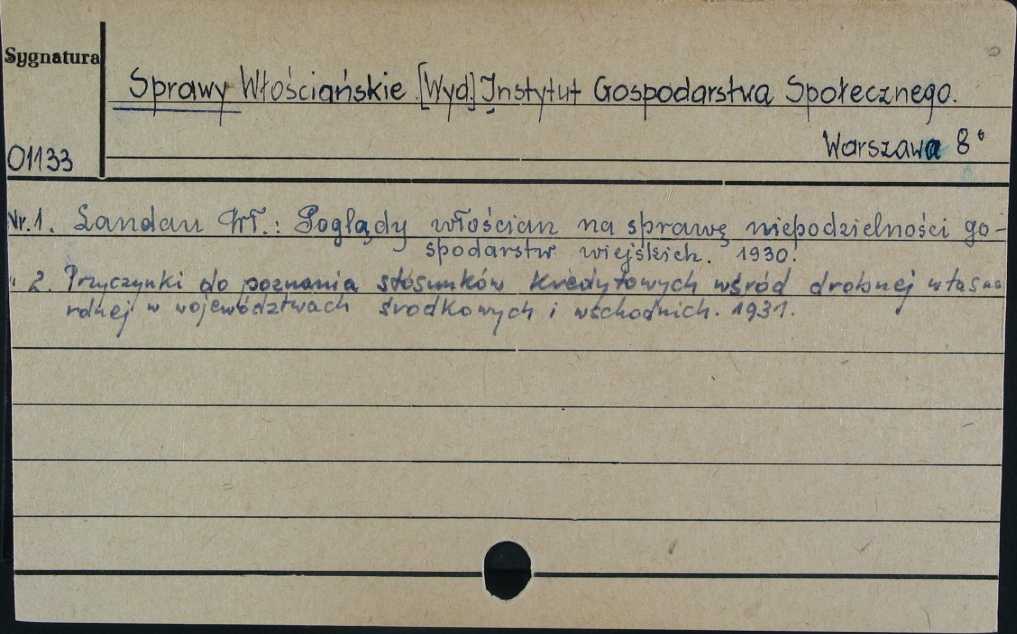 Sygnatura
Sprawy Włościańskie [Wyd] Instytut Gospodarstwa Społecznego.
01133
Warszawa 8°
Nr. 1. Landau Wł.: Poglądy włościan na sprawę niepodzielności go-
spodarstw wiejskich. 1930.
" 2. Przyczynki do poznania stosunków kredytowych wśród drobnej
rolnej w województwach środkowych i wschodnich. 1931.